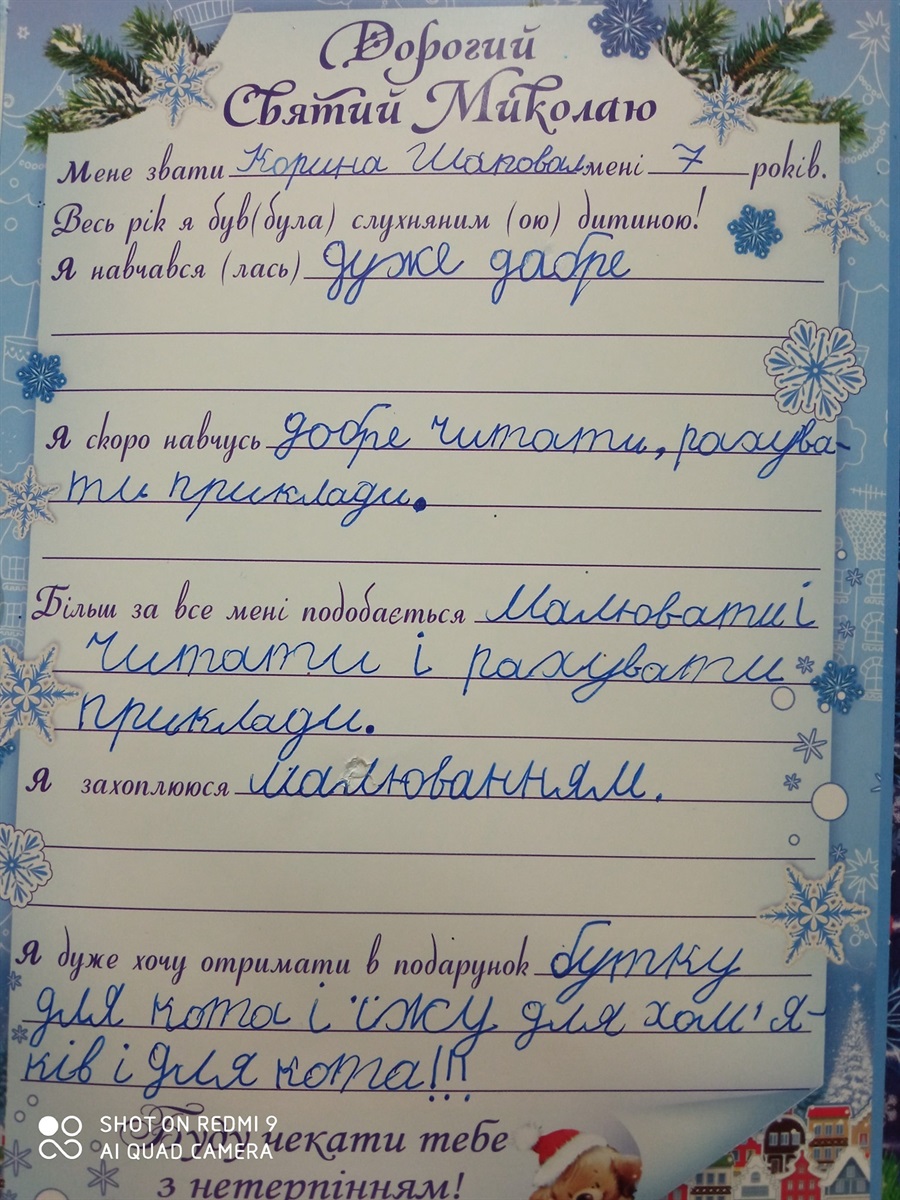 Дорогий
Святий Миколаю
Мене звати Корина Шаповал мені 7 років.
Весь рік я був(була) слухняним (ою) дитиною!
Я навчався (лась) дуже дабре
Я скоро навчусь добре читати, рахува-
ти приклади.
Більш за все мені подобається малювати і
читати і рахувати
приклади.
Я захоплююся малюванням.
Я дуже хочу отримати в подарунок бутку
для кота і їжу для хом'я-
ків і для кота!!!
Буду чекати тебе
з нетерпінням!
SHOT ON REDMI 9
AI QUAD CAMERA